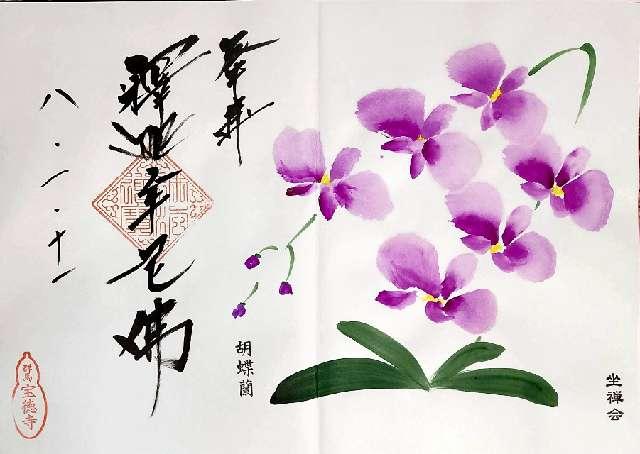 坐禅会
胡蝶蘭
奉拝
釋迦牟尼佛
八・一・十一
群馬
宝徳寺